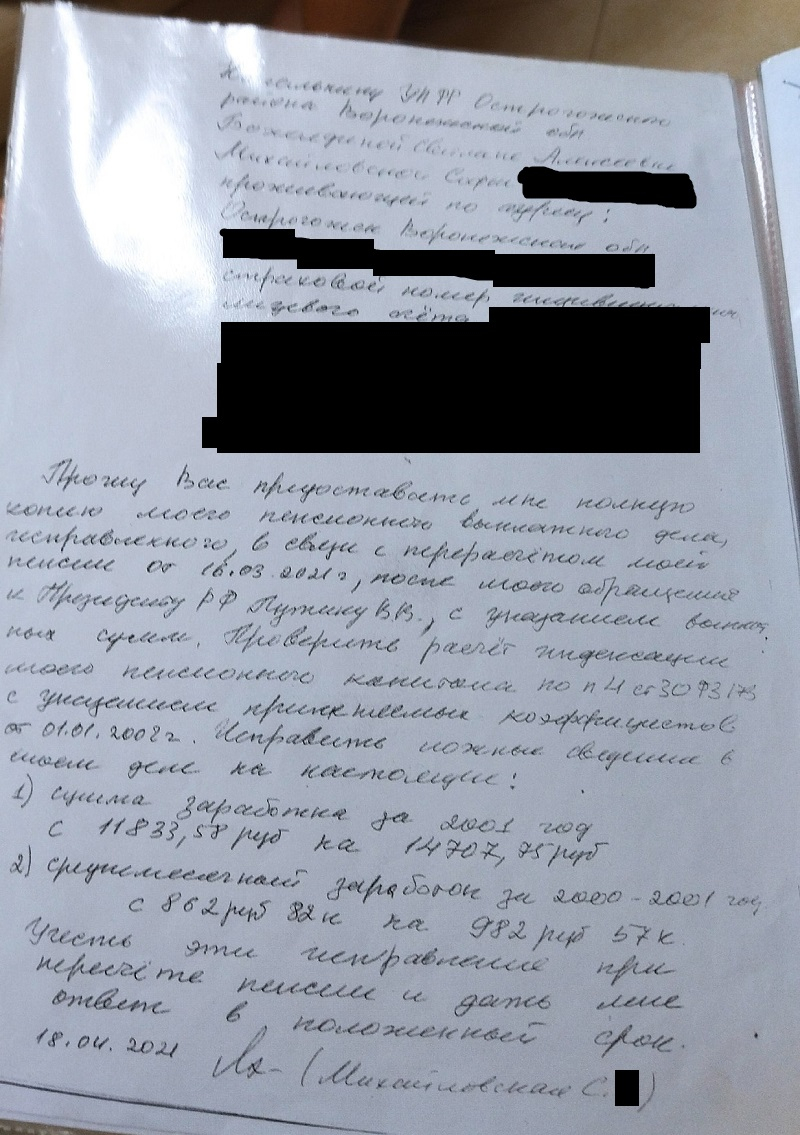 Начальнику УПФР Острогожского
района Воронежской обл
Светлане Алексеевне
Михайловской Софьи
проживающей по адресу:
Острогожск Воронежская обл
страховой номер
лицевого счёта
Прошу Вас предоставить мне полную
копию моего пенсионного выплатного дела,
исправленного, в связи с перерасчётом моей
пенсии от 16.03.2021г, после моего обращения
к Президенту РФ Путину В.В., с указанием выплат
ных сумм. Проверить расчёт индексации
моего пенсионного капитала по п4 ст30
с указанием применяемых коэффицистов
от 01.01.2002г. Исправить ложные сведения в
моем деле на настоящие:
1) сумма заработка за 2001 год
с 11833,58 руб на 14707,75 руб
2) среднемесячный заработок за 2000-2001 год
с 862 руб 82к на 982 руб 57к.
Учесть эти исправления при
пересчёте пенсии и дать мне
ответ в положенный срок.
18.04.2021 (Михайловская С. )